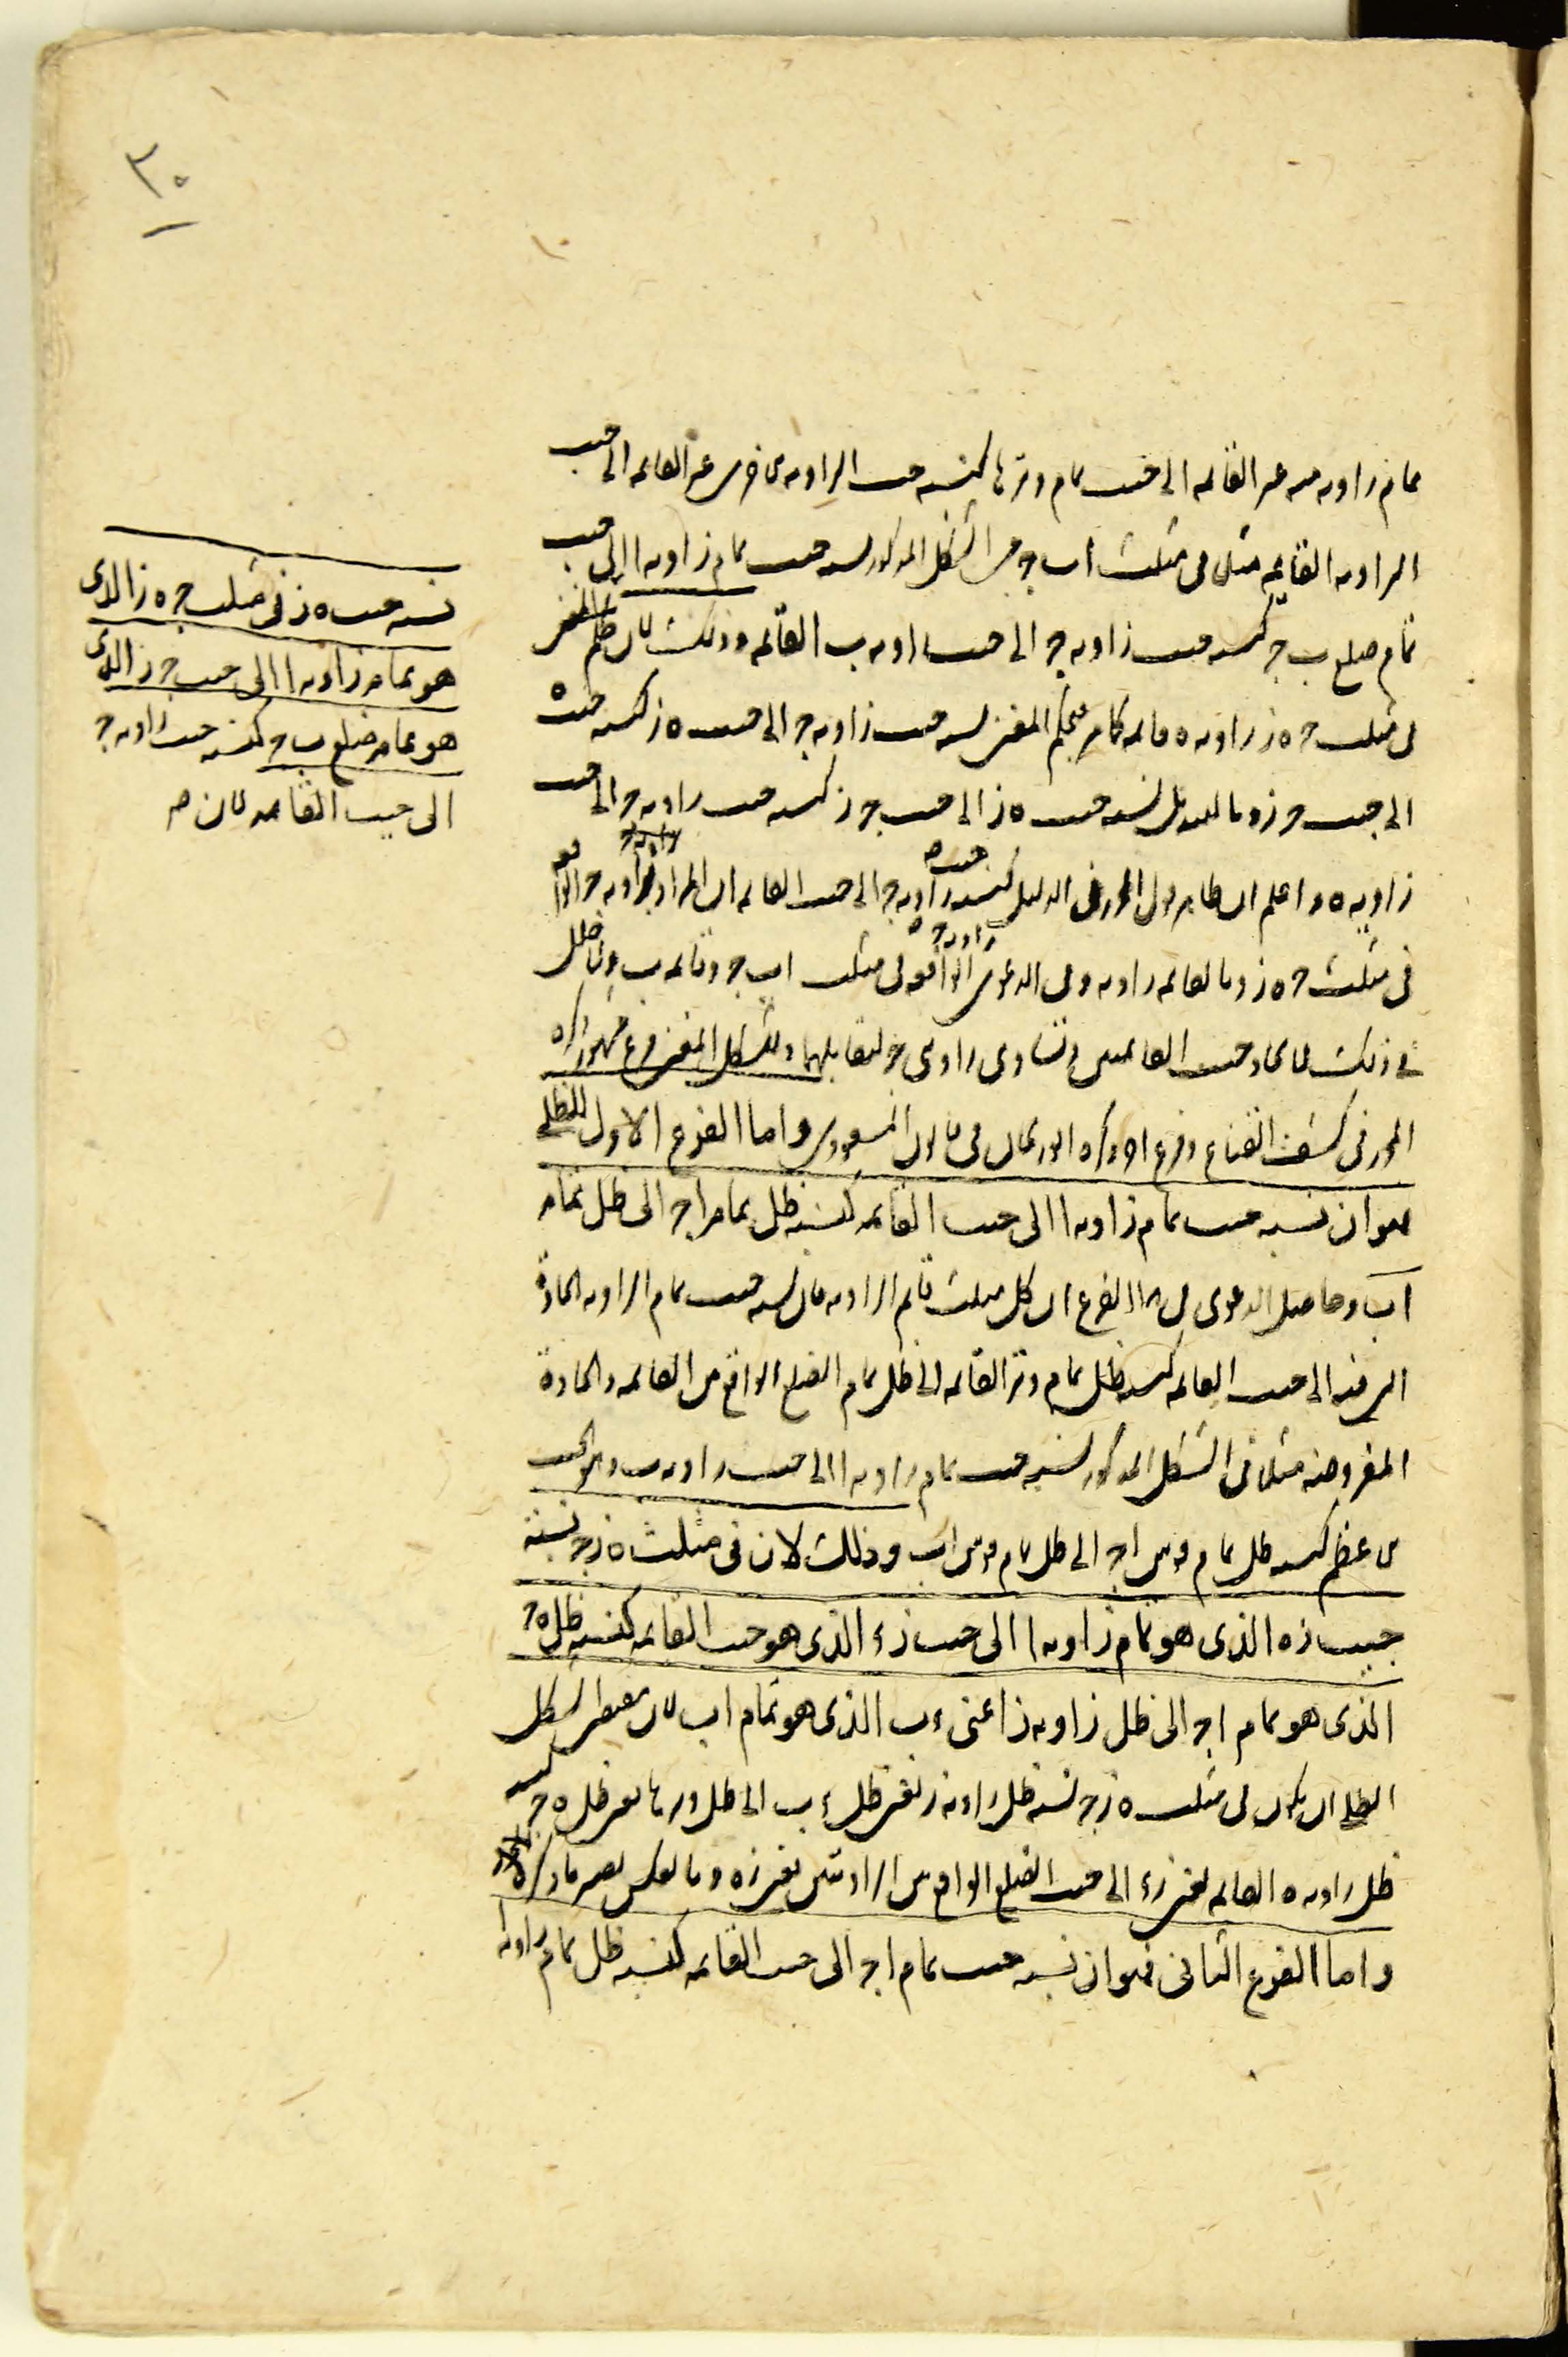 ٣٠
تمام زاويه منه غير القائمه الى جيب تمام وترها كنسبه جيب الزاويه الاخرى غير القائمه الى جيب
الزاويه القائمه مثلا فى مثلث ا ب ج من الشكل المذكور نسبه جيب تمام زاويه ا الى جيب
تمام ضلع ب ج كنسبه جيب زاويه ج الى جيب زاويه ب القائمه وذلك لان المغنى
فى مثلث ج ه ز زاويه ه قائمه بحكم المغنى نسبه جيب زاويه ج الى جيب ه ز كنسبه جيب ه
الى جيب ج ز وبالتبديل نسبه جيب ه ز الى جيب ج ز كنسبه جيب زاويه ج الى جيب
زاويه ه واعلم ان ظاهر قول المحرر فى الدليل كنسبه جيب زاويه ج الى جيب القائمه ان المراد بزاويه ج الواقعه
فى مثلث ج ه ز وبالقائمه زاويه ه وفى الدعوى زاويه ج الواقعه فى مثلث ا ب ج وقائمه ب ولا خلل
فى ذلك لاتحاد جيب القائمتين وتساوى زاويتى ج لتقابلهما وللشكل المغنى فرع مشهور ذكره
المحرر فى كشف القناع وفرع اخر ذكره ابو ريحان فى قانون المسعودى واما الفرع الاول للظلى
فهو ان نسبه جيب تمام زاويه ا الى جيب القائمه كنسبه ظل تمام ا ج الى ظل تمام
ا ب وحاصل الدعوى فى هذا الفرع ان كل مثلث قائم الزاويه فان نسبه جيب تمام الزاويه الحادة
الى جيب القائمه كنسبه ظل تمام وتر القائمه الى ظل تمام الضلع الواقع بين القائمه والحادة
المفروضه مثلا فى الشكل المذكور نسبه جيب تمام زاويه ا الى جيب زاويه ب وهو الجيب
الاعظم كنسبه ظل تمام قوس ا ج الى ظل تمام قوس ا ب وذلك لان فى مثلث ه ز ج نسبة
جيب ز ه الذى هو تمام زاويه ا الى جيب ز ء الذى هو جيب القائمه كنسبه ظل ه ج
الذى هو تمام ا ج الى ظل زاويه ز اعنى ء ب الذى هو تمام ا ب لان مقتضى الشكل
الظلى ان يكون فى مثلث ه ز ج نسبه ظل زاويه ز يعنى ظل ء ب الى ظل وترها يعنى ظل ه ج كنسبه
ظل زاويه ه القائمه يعنى ز ء الى جيب الضلع الواقع بين الزاويتين يعنى ز ه وبالعكس يصير ما ذكره
واما الفرع الثانى فهو ان نسبه جيب تمام ا ج الى جيب القائمه كنسبه ظل تمام زاويه ا
نسبه جيب ه ز فى مثلث ج ه ز الذى
هو تمام زاويه ا الى جيب ج ز الذى
هو تمام ضلع ب ج كنسبه جيب زاويه ج
الى جيب القائمه لان